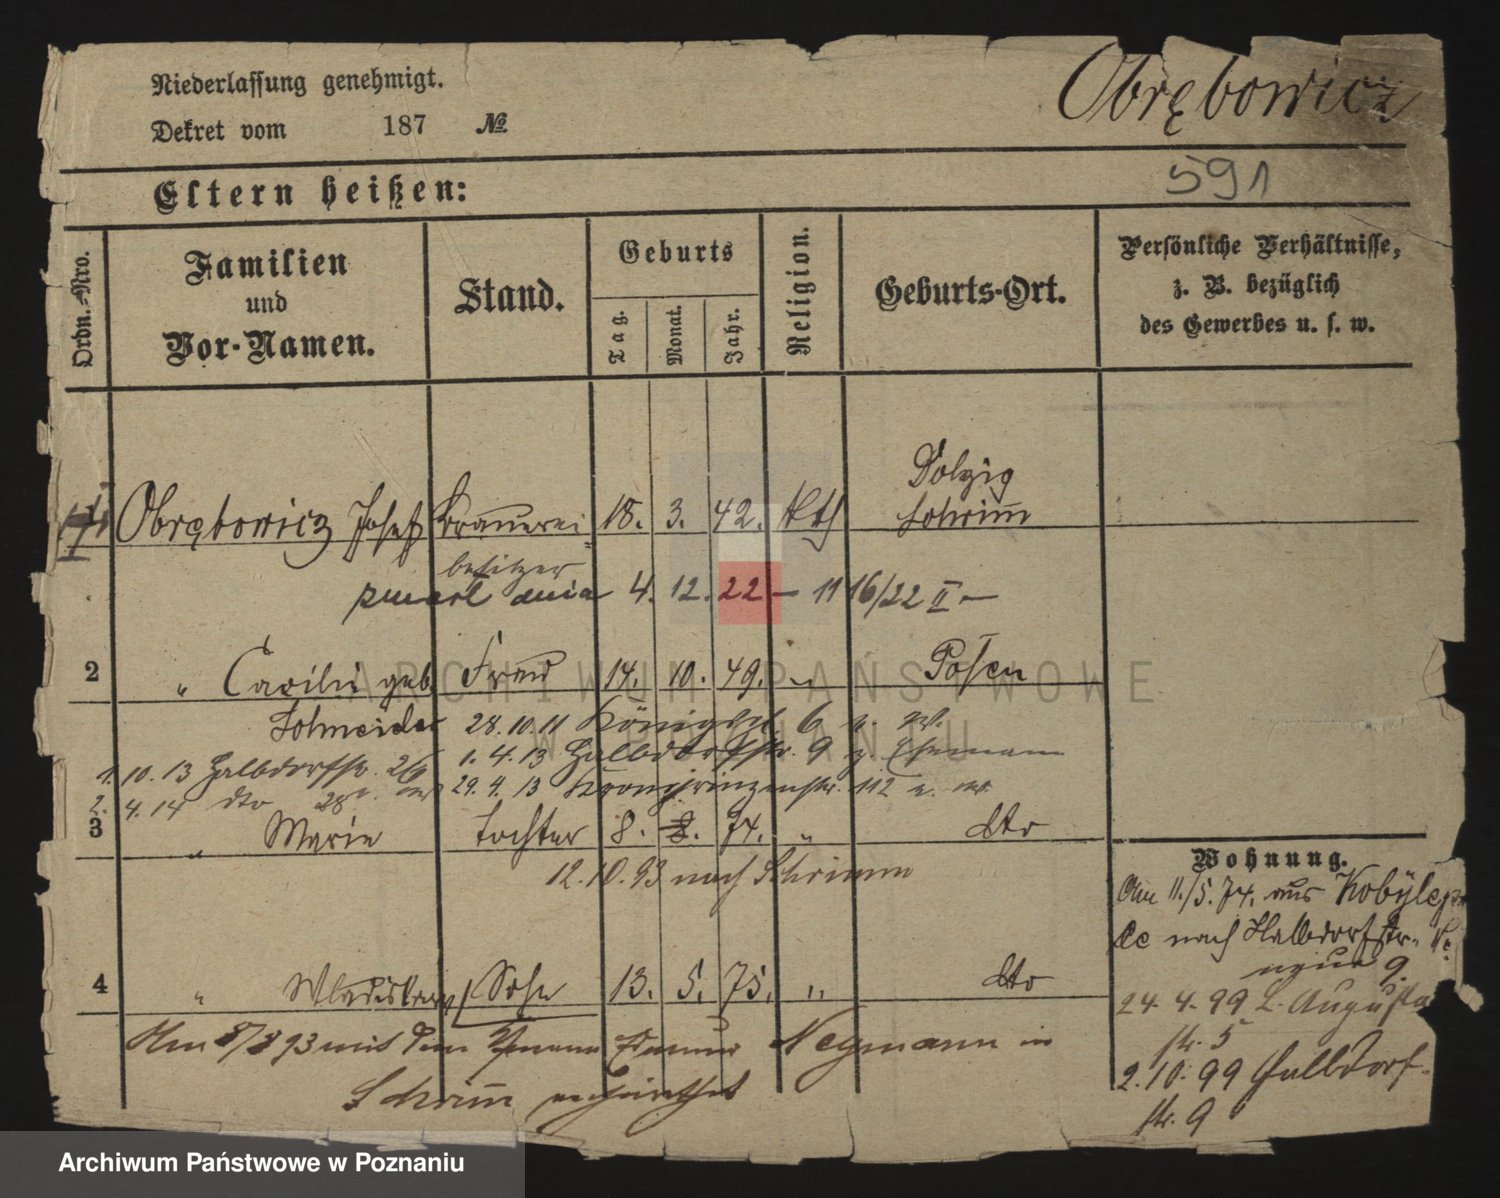 Niederlassung genehmigt.
Dekret vom 187 №
Obrębowicz
591
Eltern heißen:
Ordn.-Nro.
Familien und Vor-Namen.
Stand.
Geburts
Tag.
Monat.
Jahr.
Religion.
Geburts-Ort.
Persönliche Verhältnisse, z. B. bezüglich des Gewerbes u. s. w.
Dolzig
1 Obrębowicz Josef Brauerei 18. 3. 42. kth Schrimm
besitzer
zmarł dnia 4. 12. 22 — 11 16/22 II —
2 " Cäcilie geb. Frau 14. 10. 49. " Posen
Schneider 28.10.11 Königspl. 6
1. 4. 13 Halbdorfstr. 9 z. Ehemann
1. 10. 13 Halbdorfstr. 26 29. 4. 13 Kronprinzenstr. 112
2. 4. 14 dto 28
3 " Marie Tochter 8. 8. 74. " dto
12. 10. 93 nach Schrimm
4 " Wladislaus Sohn 13. 5. 75. " dto
Am 8/8 93 mit dem Neymann in
Schrimm verheirathet
Wohnung.
Am 11./5. 74. aus Kobylepo
le nach Halbdorfstr.
neue 9.
24. 4. 99 L. Augusta
str. 5
2. 10. 99 Halbdorf-
str. 9
ARCHIWUM PAŃSTWOWE
W POZNANIU
Archiwum Państwowe w Poznaniu